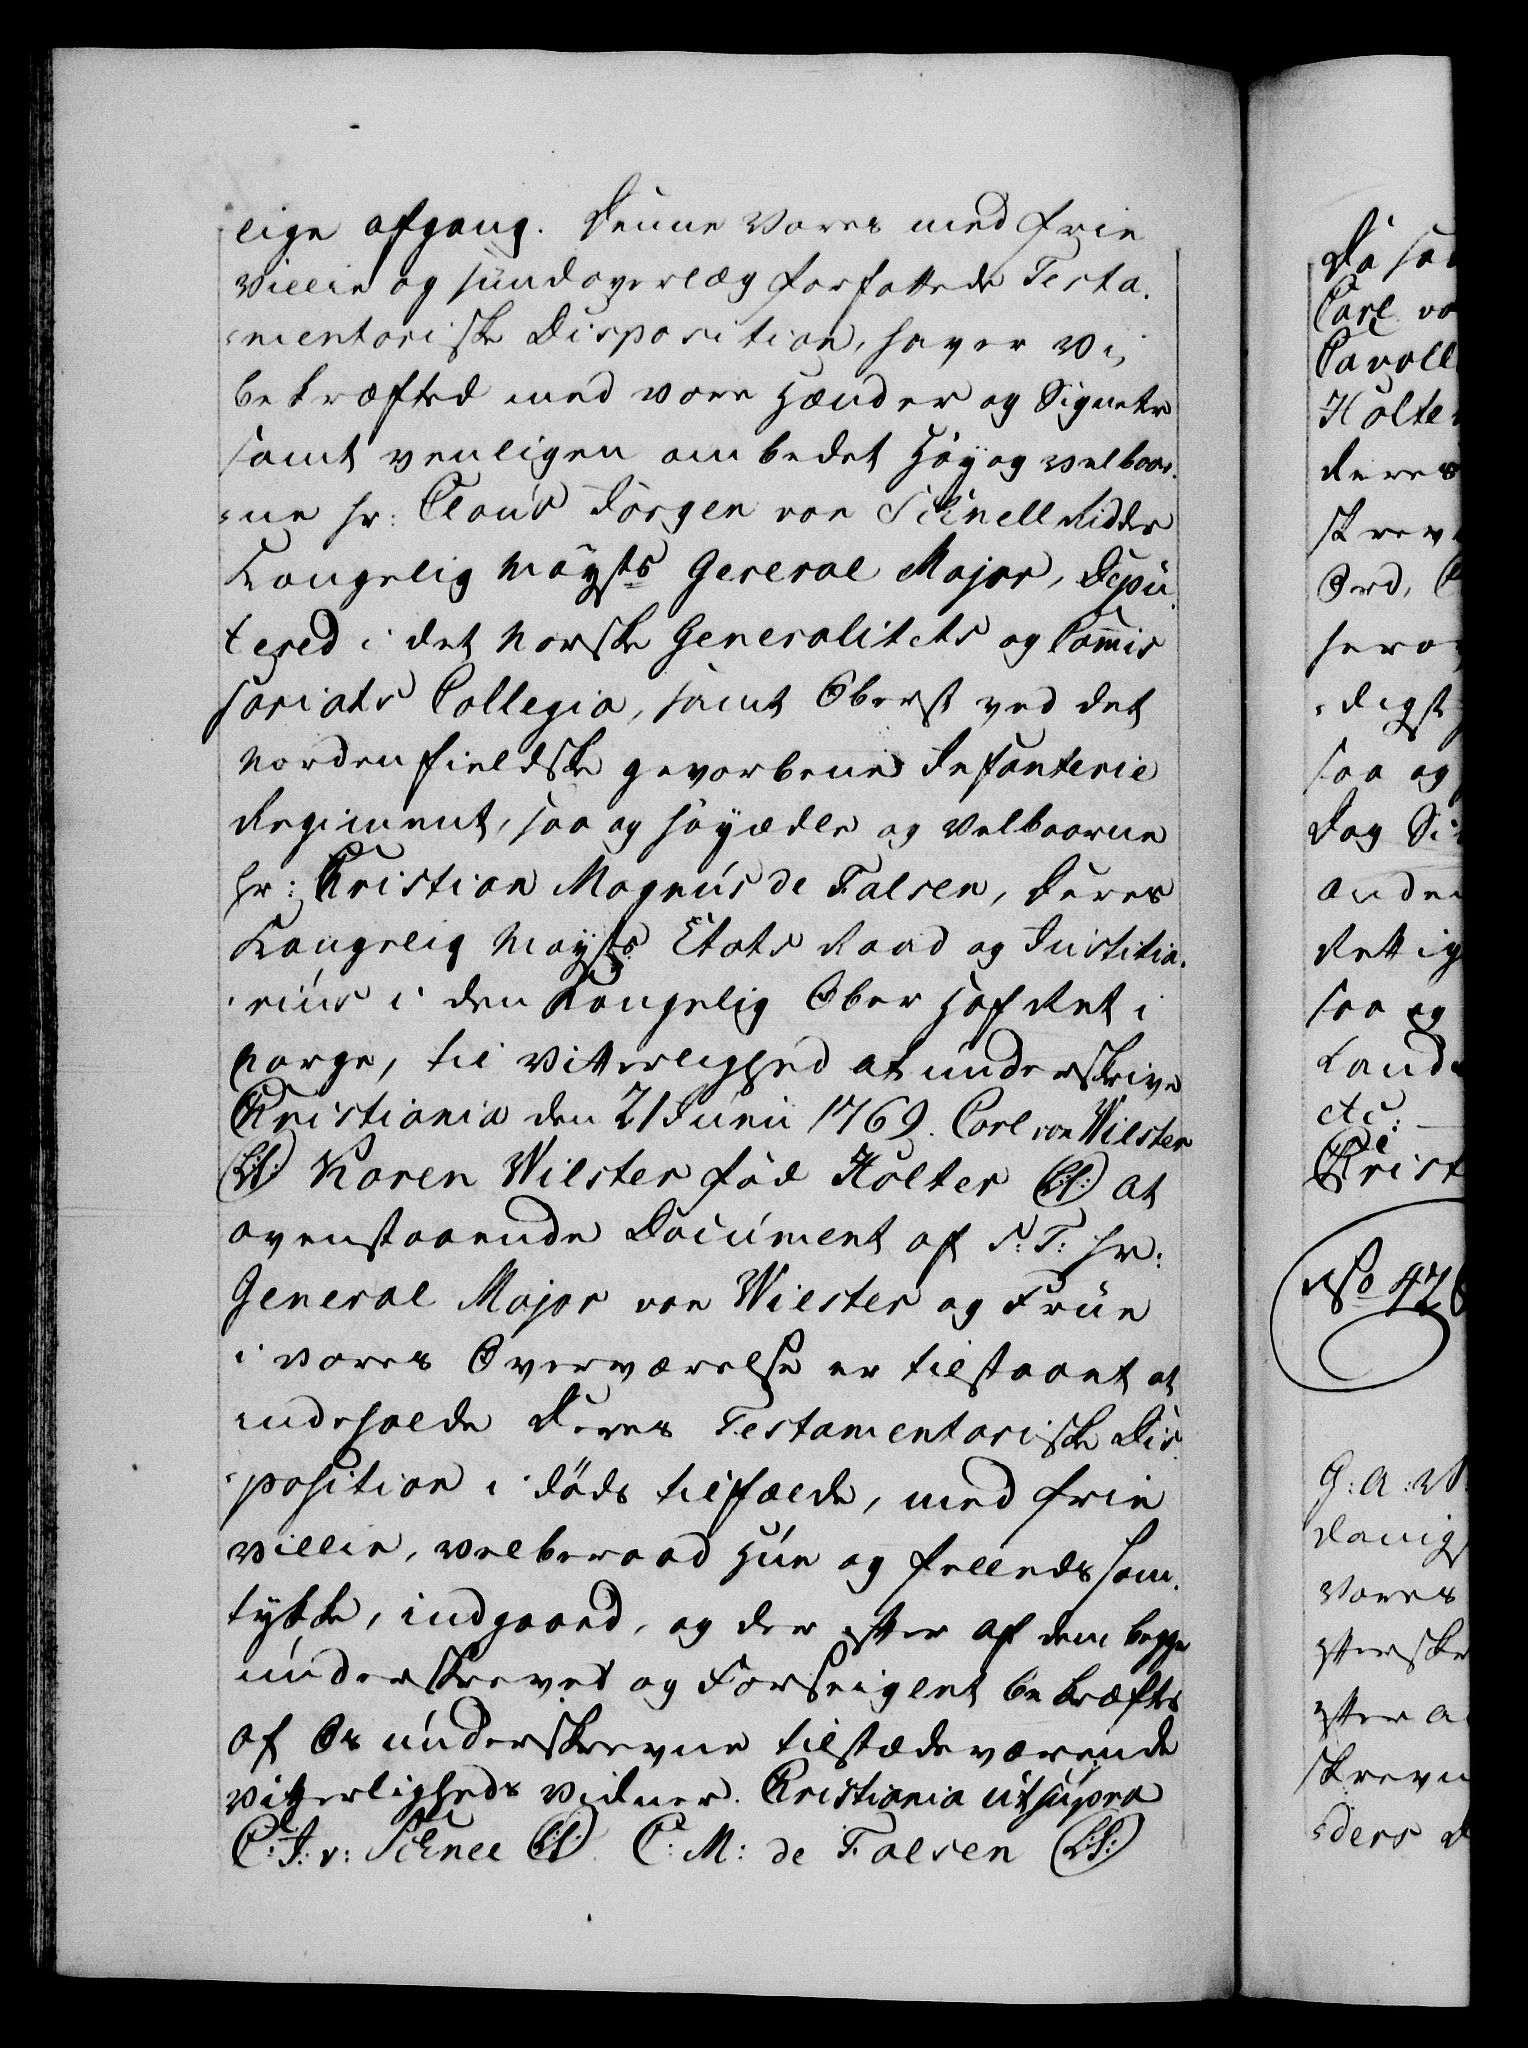 lige afgang. Denne vores med frie
villie og sundoverlæg forfattede Testa-
mentoriske Disposition, haver vi,
bekræfted med vore Hænder og Signeter
samt venligen ombedet Høy og velbaar-
ne hr: Claus Jörgen von Schnell Ridder
Kongelig Mayts General Major, Depu-
tered i det Norske Generalitets og Commis
sariats Collegio, samt Oberst ved det
Nordenfieldske gevorbene Infanterie
Regiment, saa og høyædle og velbaarne
hr: Christian Magnus de Falsen, Deres
Kongelig Mayts Etats Raad og Justitia-
rius i den Kongelig Ober Hof Ret i
Norge, til Vitterlighed at underskrive
Christiania den 21 Junii 1769. Carl von Wilster
(L:S:) Karen Wilster fød Holter (L:S:) at
ovenstaaende Document af S: T: hr:
General Major von Wilster og Frue
i vores Overværelse er tilstaaet at
indeholde Deres Testamentariske Dis-
position i døds tilfælde, med frie
villie, velberaad Hue og fælleds Sam-
tykke, indgaaed, og der efter af dem begge
underskrevet og Forseiglet bekræftes
af Os underskrevne tilstædeværende
vitterligheds vidner. Christiania ut supra
C: J: v: Schnel (L:S:) C: M: de Falsen (L:S:)
Da sa
Carl vo
Cavall
Holte
deres
skrev
Ord,
hera
digst
saa og
Dog
anden
Rettig
saa og
Lande
etc:
Christ
No 426
G: A: W
danig
Vores
efterske
efter a
skrevn
ders D